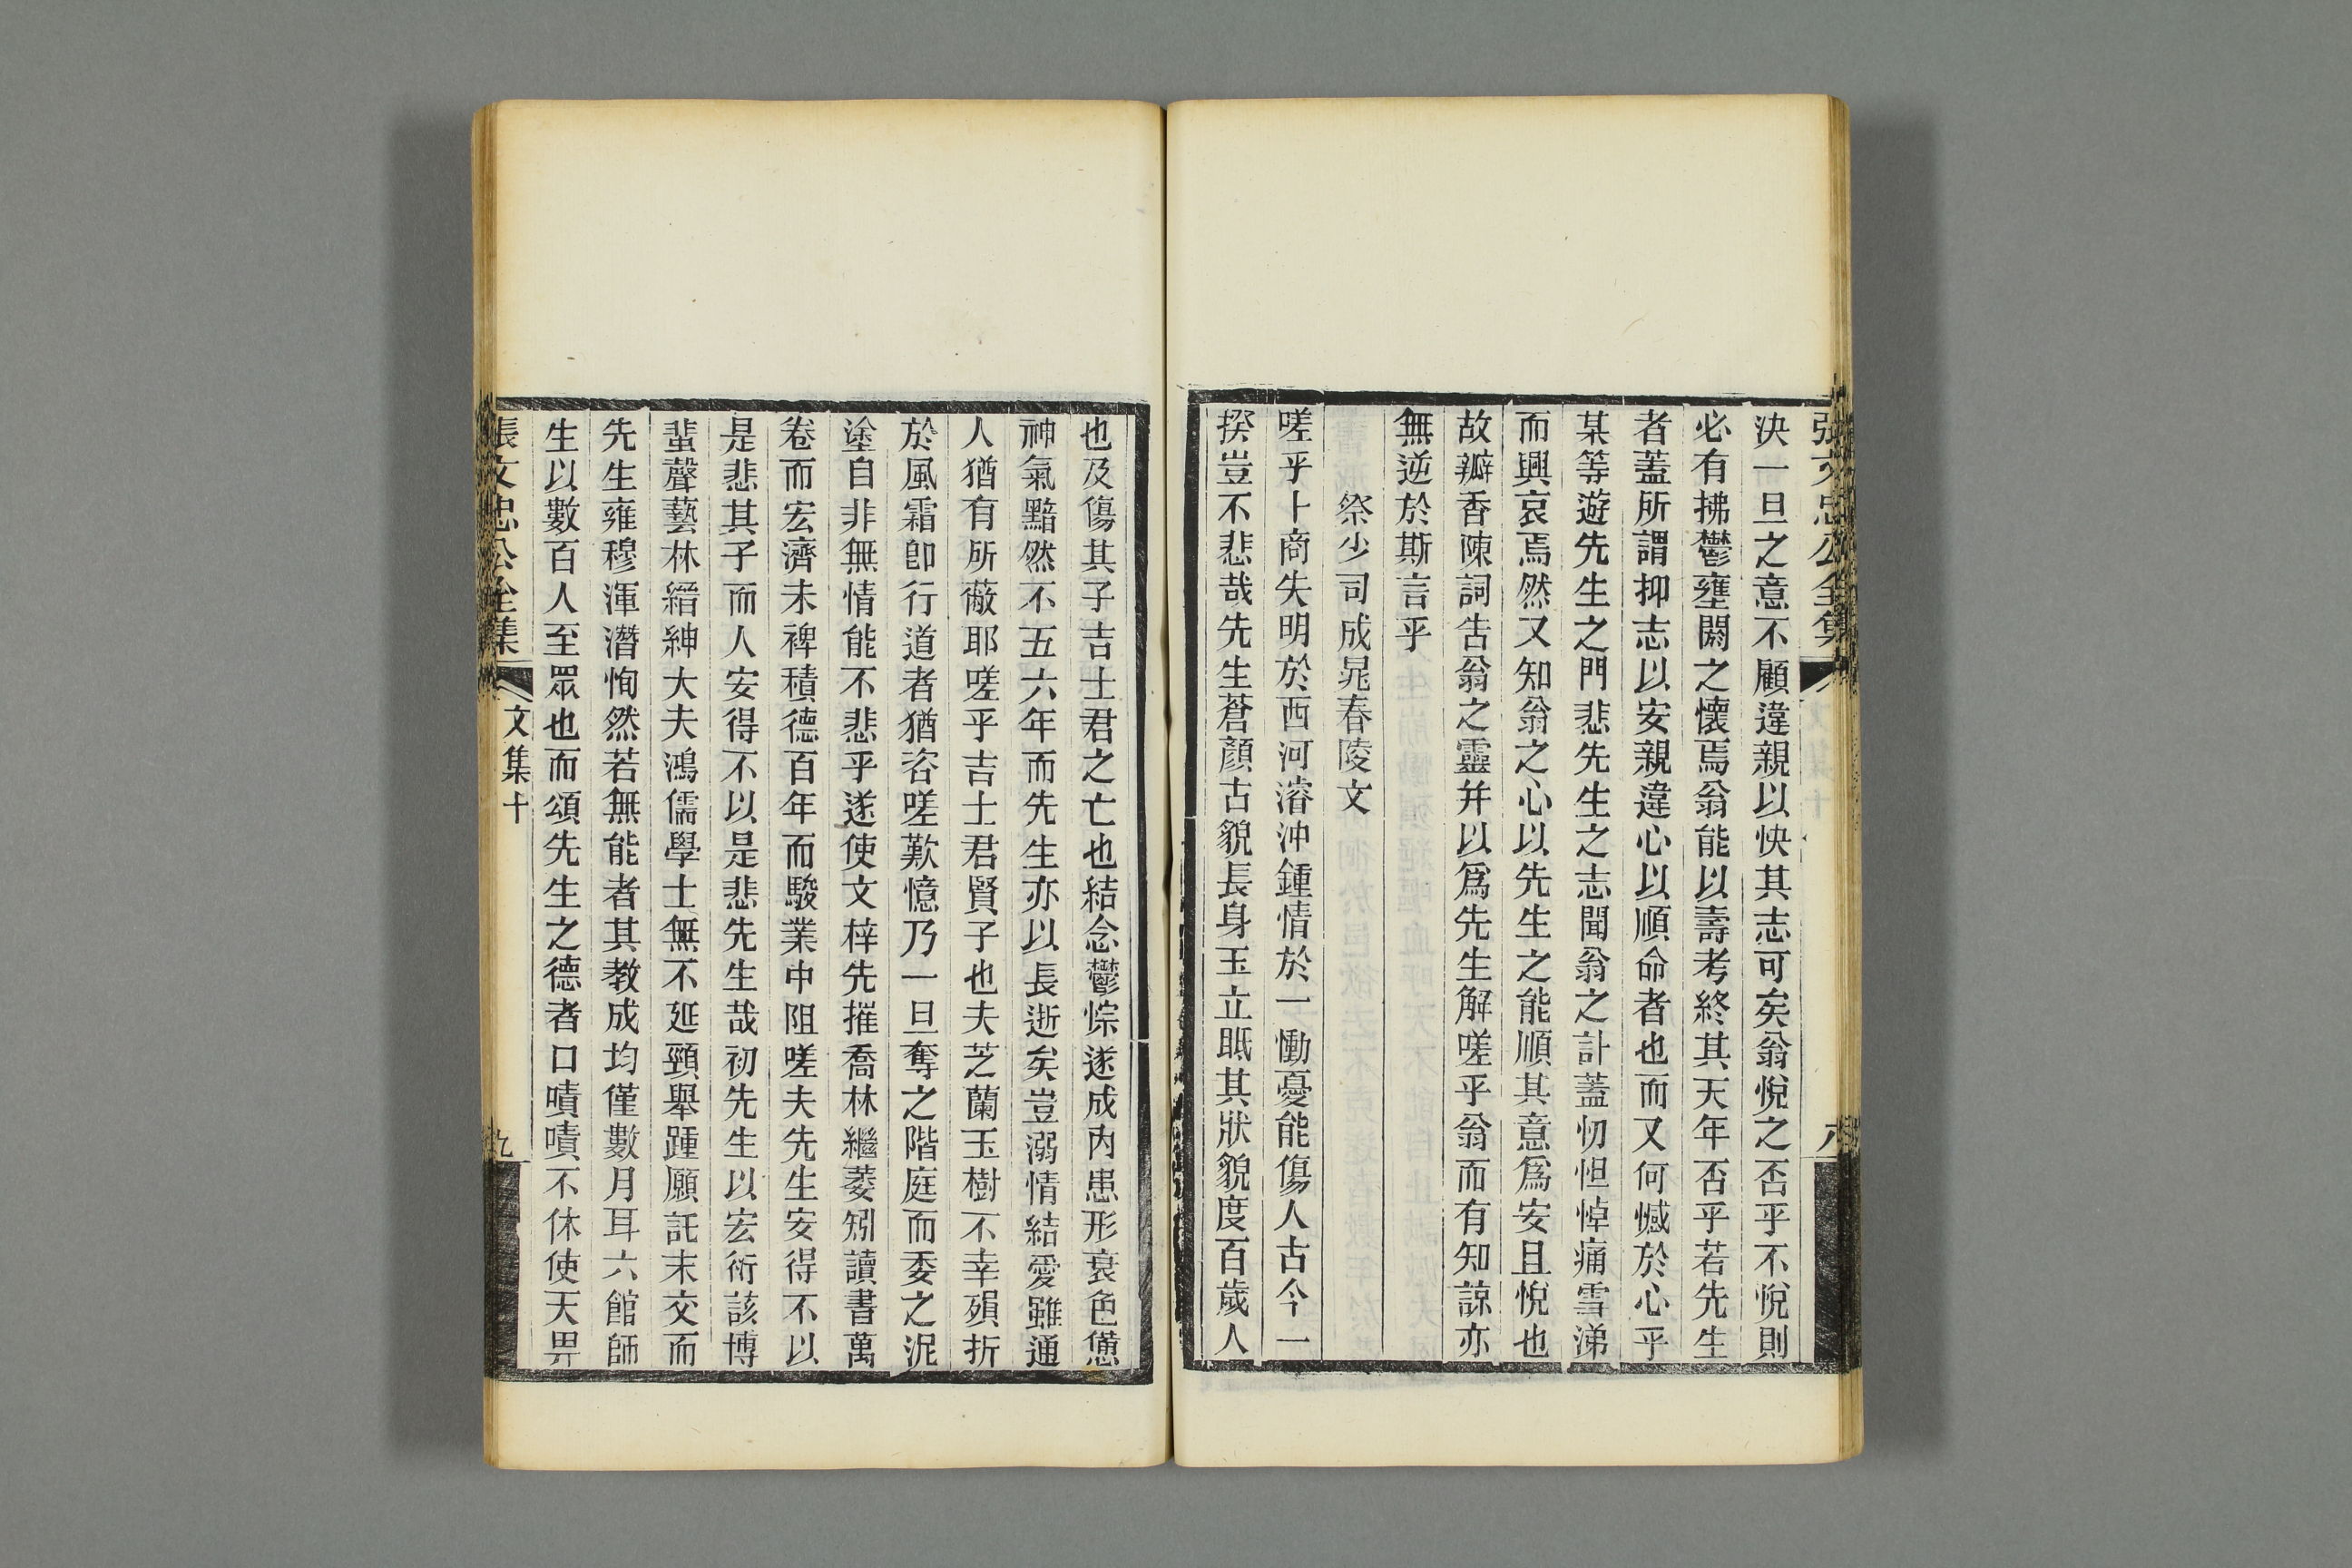 張文忠公全集
決一旦之意不顧違親以快其志可矣翁悅之否乎不悅則
必有拂鬱壅閼之懷焉翁能以壽考終其天年否乎若先生
者蓋所謂抑志以安親違心以順命者也而又何憾於心乎
某等遊先生之門悲先生之志聞翁之訃蓋忉怛悼痛雪涕
而興哀焉然又知翁之心以先生之能順其意爲安且悅也
故瓣香陳詞告翁之靈并以爲先生解嗟乎翁而有知諒亦
無逆於斯言乎
祭少司成晁春陵文
嗟乎卜商失明於西河濬沖鍾情於一慟憂能傷人古今一
揆豈不悲哉先生蒼顏古貌長身玉立眂其狀貌度百歲人
也及傷其子吉士君之亡也結念鬱悰遂成內患形衰色憊
神氣黯然不五六年而先生亦以長逝矣豈溺情結愛雖通
人猶有所蔽耶嗟乎吉士君賢子也夫芝蘭玉樹不幸殞折
於風霜卽行道者猶咨嗟歎憶乃一旦奪之階庭而委之泥
塗自非無情能不悲乎遂使文梓先摧喬林繼萎矧讀書萬
卷而宏濟未裨積德百年而駿業中阻嗟夫先生安得不以
是悲其子而人安得不以是悲先生哉初先生以宏術該博
蜚聲藝林縉紳大夫鴻儒學士無不延頸舉踵願託末交而
先生雍穆渾潛恂然若無能者其教成均僅數月耳六館師
生以數百人至眾也而頌先生之德者口嘖嘖不休使天畀
張文忠公全集
文集十
九